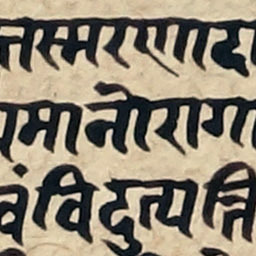 त्तस्मरणादा
यमानोरागा
वंविदुत्पत्ति